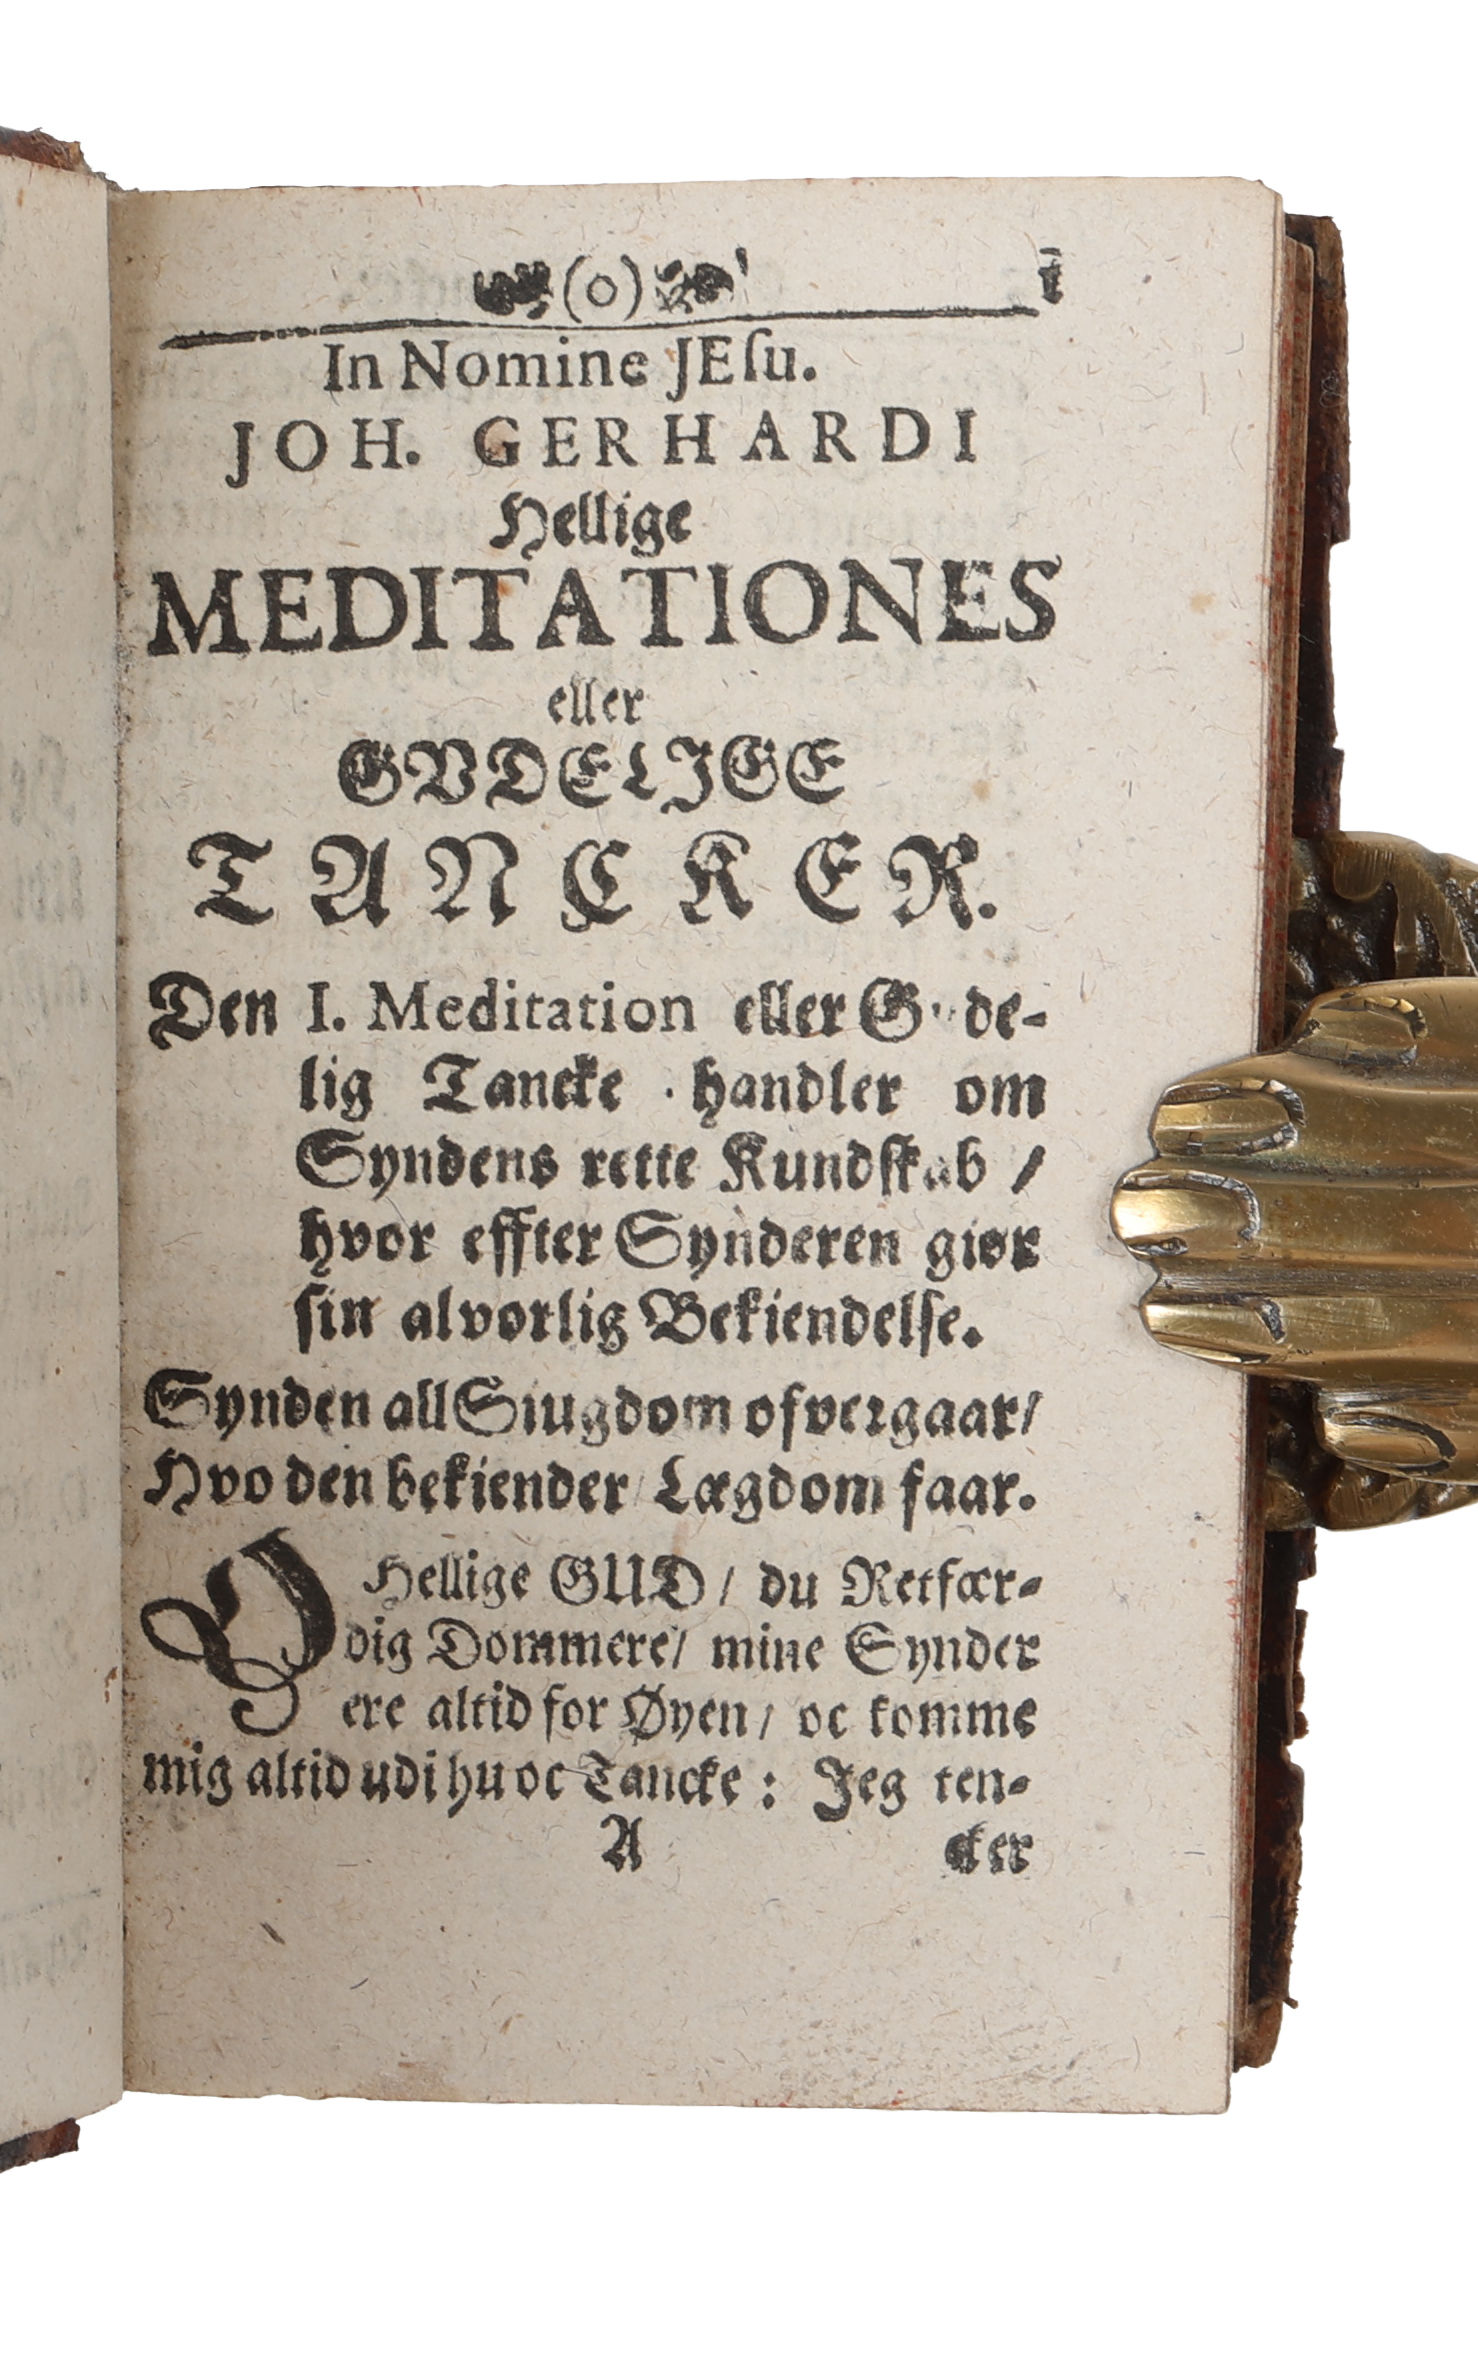 (o) 1
In Nomine JEſu.
JOH. GERHARDI
Hellige
MEDITATIONES
eller
GVDELIGE
TANCKER.
Den I. Meditation eller G de-
lig Tancke handler om
Syndens rette Kundſkab /
hvor effter Synderen giør
ſin alvorlig Bekiendelſe.
Synden all Siugdom ofvergaar/
Hvo den bekiender Lægdom faar.
O Hellige GUD / du Retfær-
dig Dommere/ mine Synder
ere altid for Øyen/ oc komme
mig altid udi hu oc Tancke: Jeg ten-
A cker